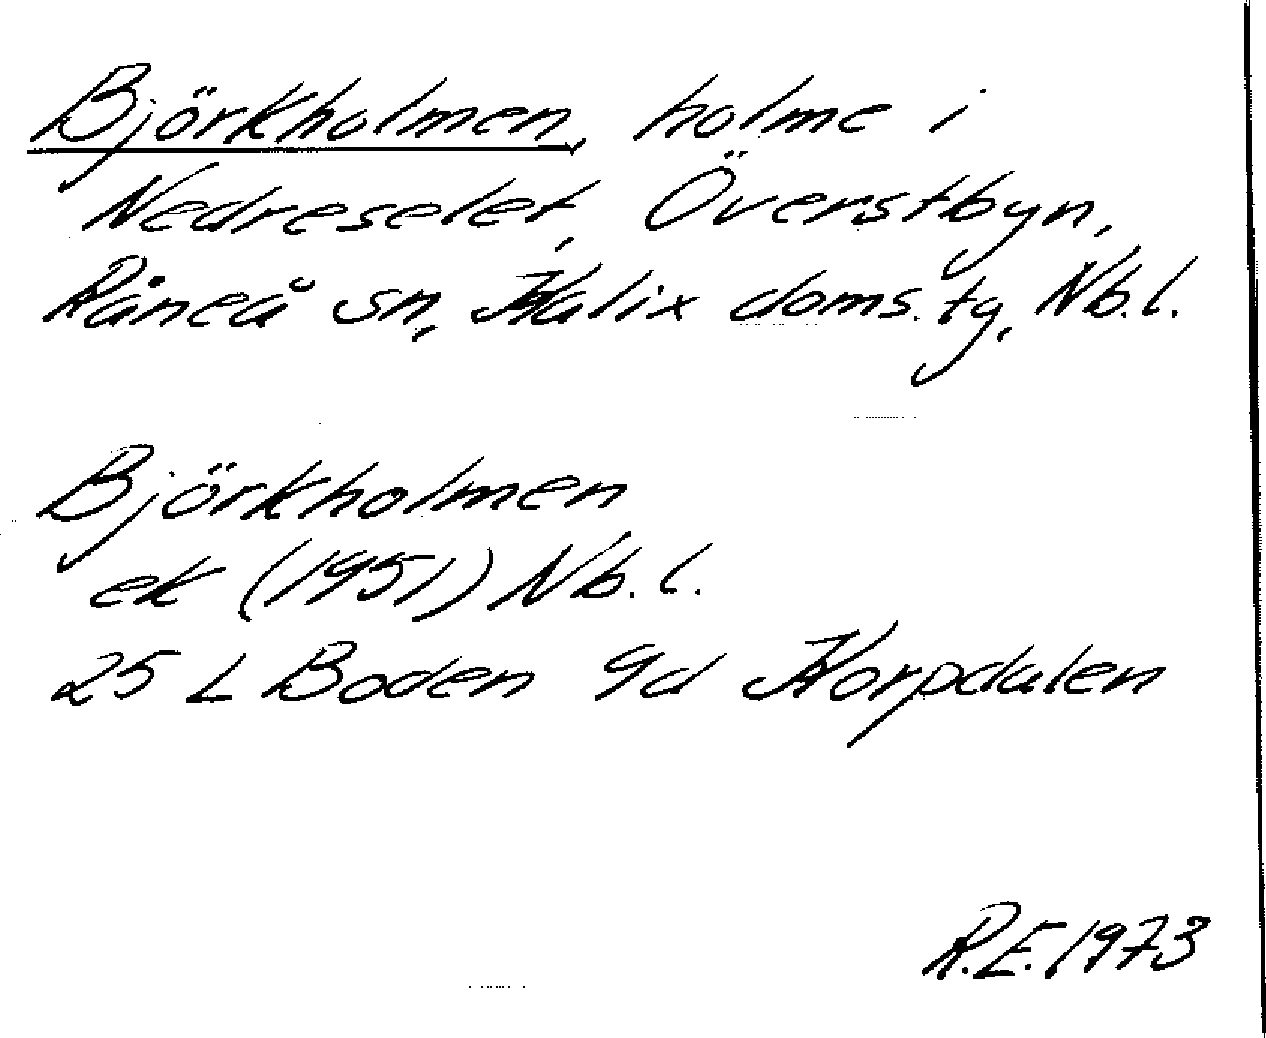 Björkholmen, holme i
Nedreselet, Överstbyn,
Råneå sn, Kalix doms. tg, Nb.l.
Björkholmen
ek (1951) Nb.l.
25 L Boden 9d Korpdalen
R.E. 1973